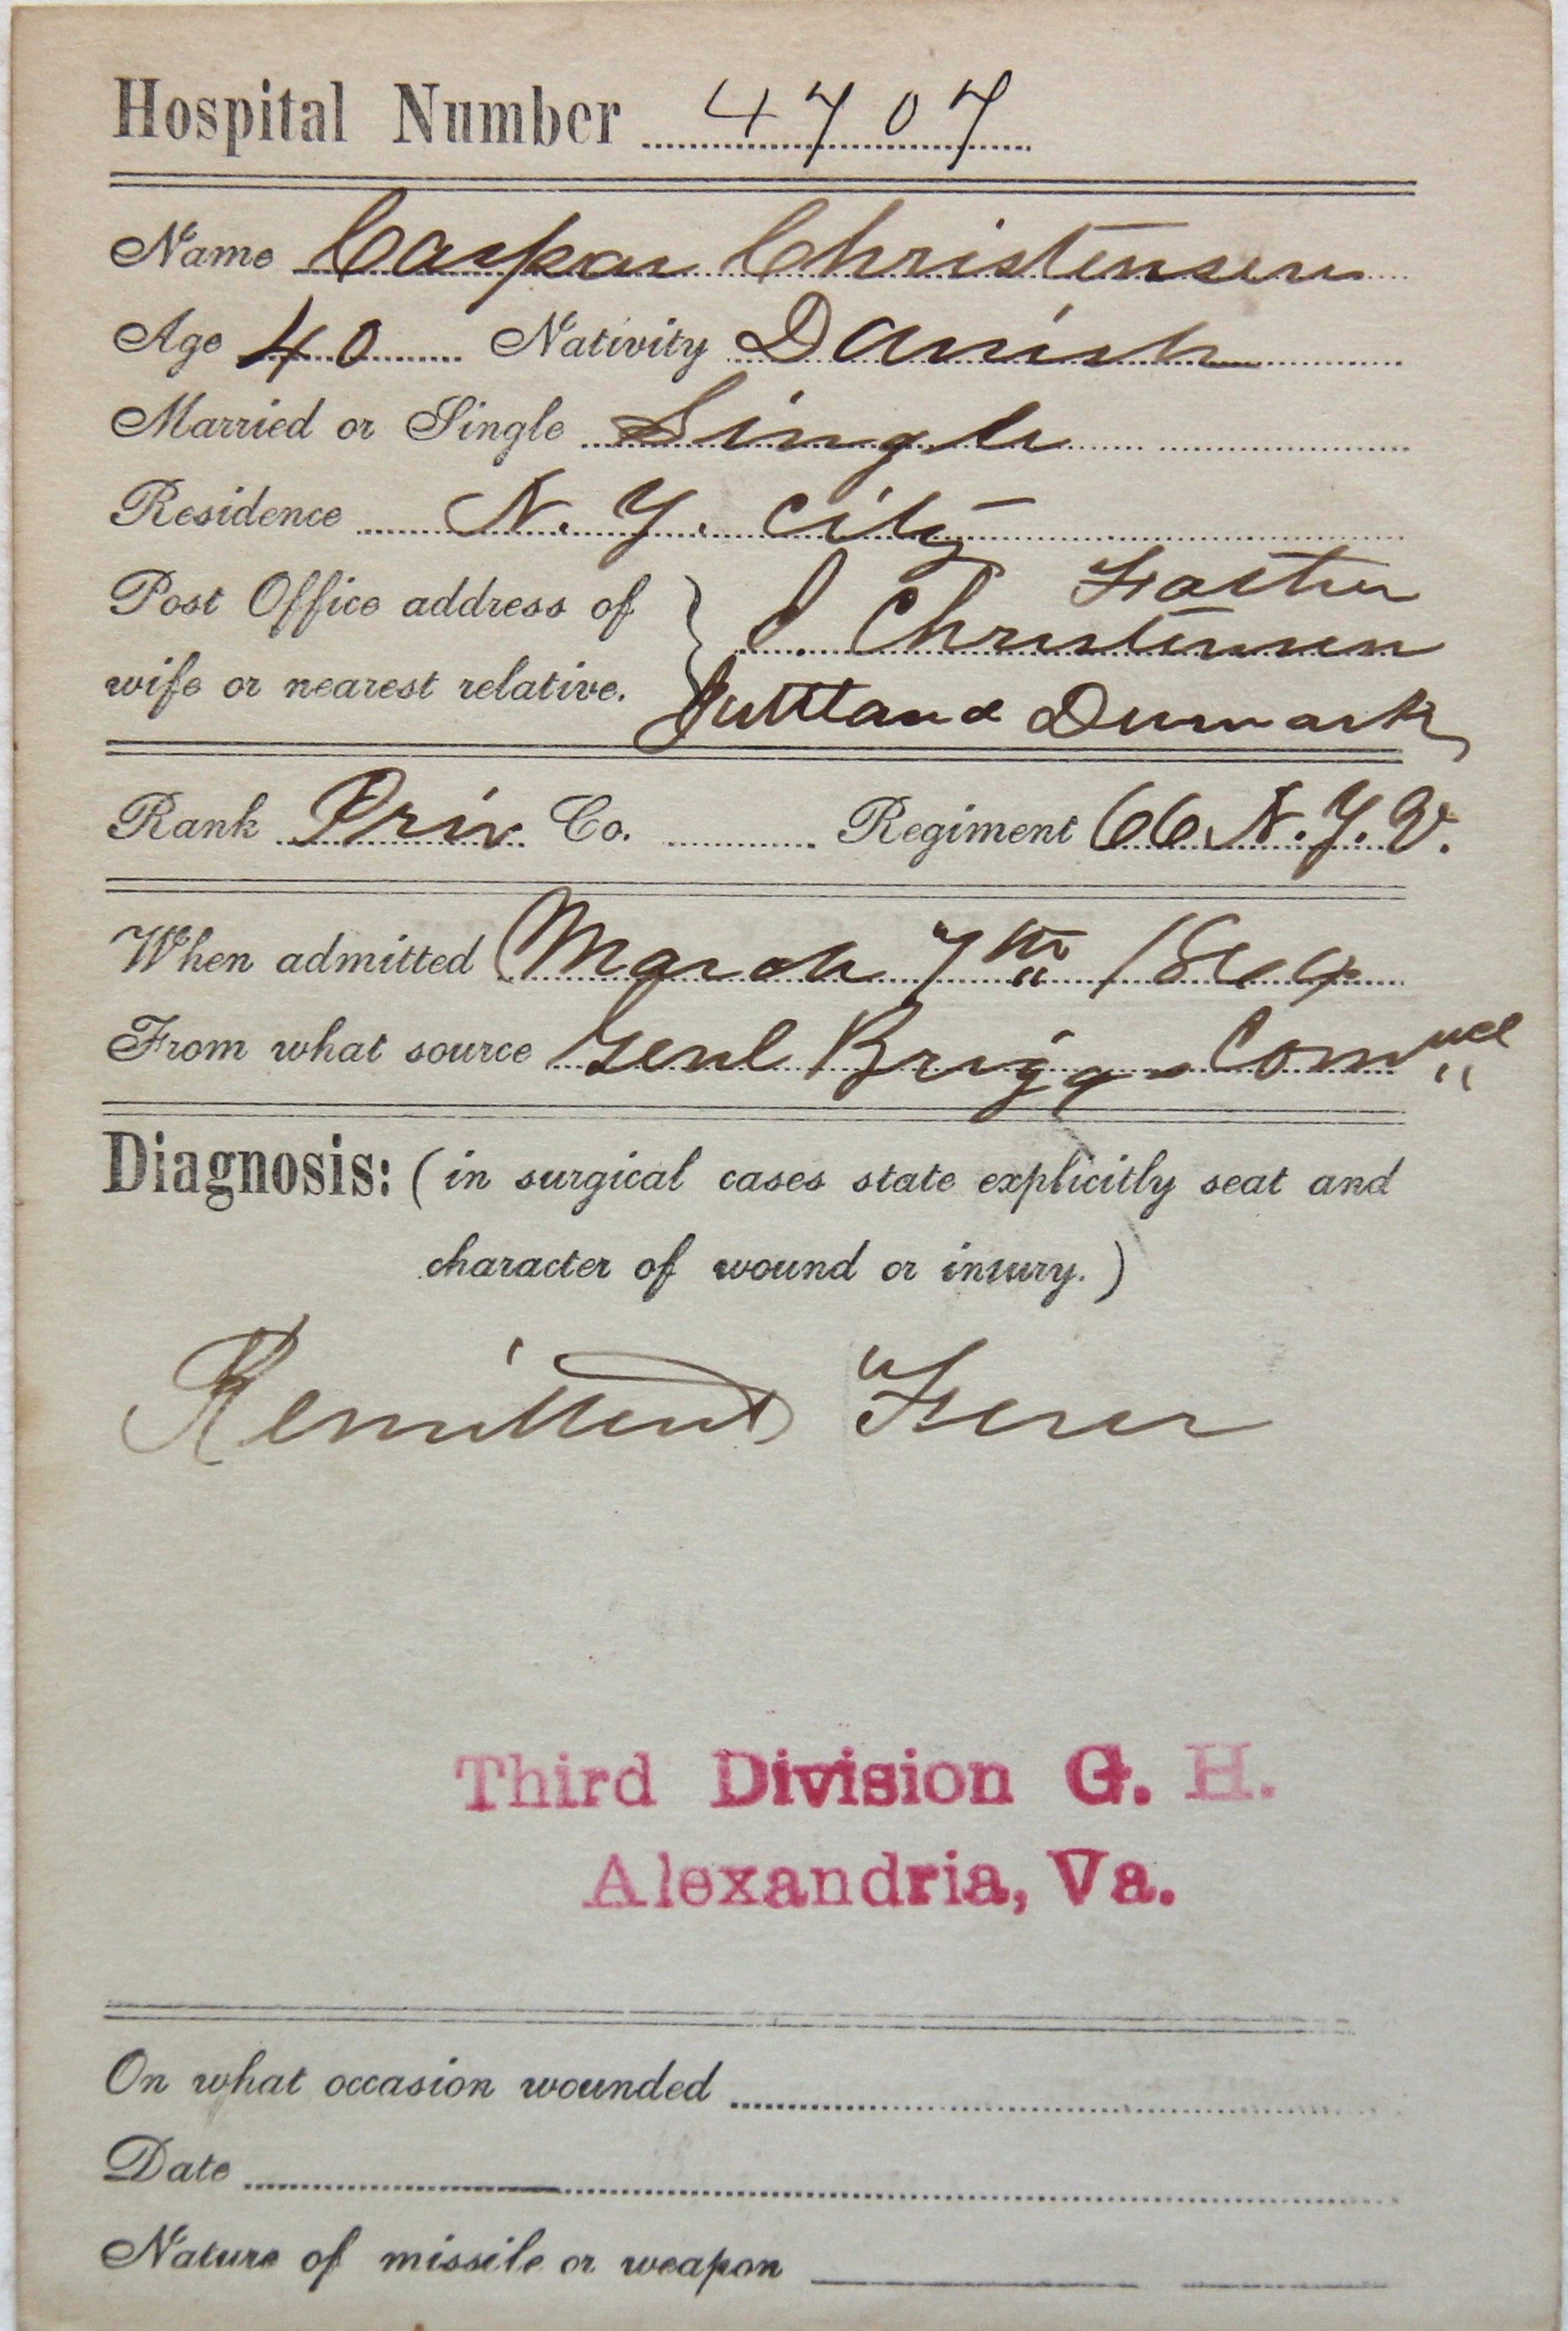 Hospital Number 4707
Name Caspar Christensen
Age 40 Nativity Danish
Married or Single Single
Residence N. Y. City
Post Office address of Father
wife or nearest relative. } J. Christensen
Juttland Denmark
Rank Priv Co. Regiment 66 N.Y.V.
When admitted March 7th 1864
From what source Genl Briggs
Diagnosis: (in surgical cases state explicitly seat and
character of wound or injury.)
Remittent Fever
Third Division G. H.
Alexandria, Va.
On what occasion wounded
Date
Nature of missile or weapon